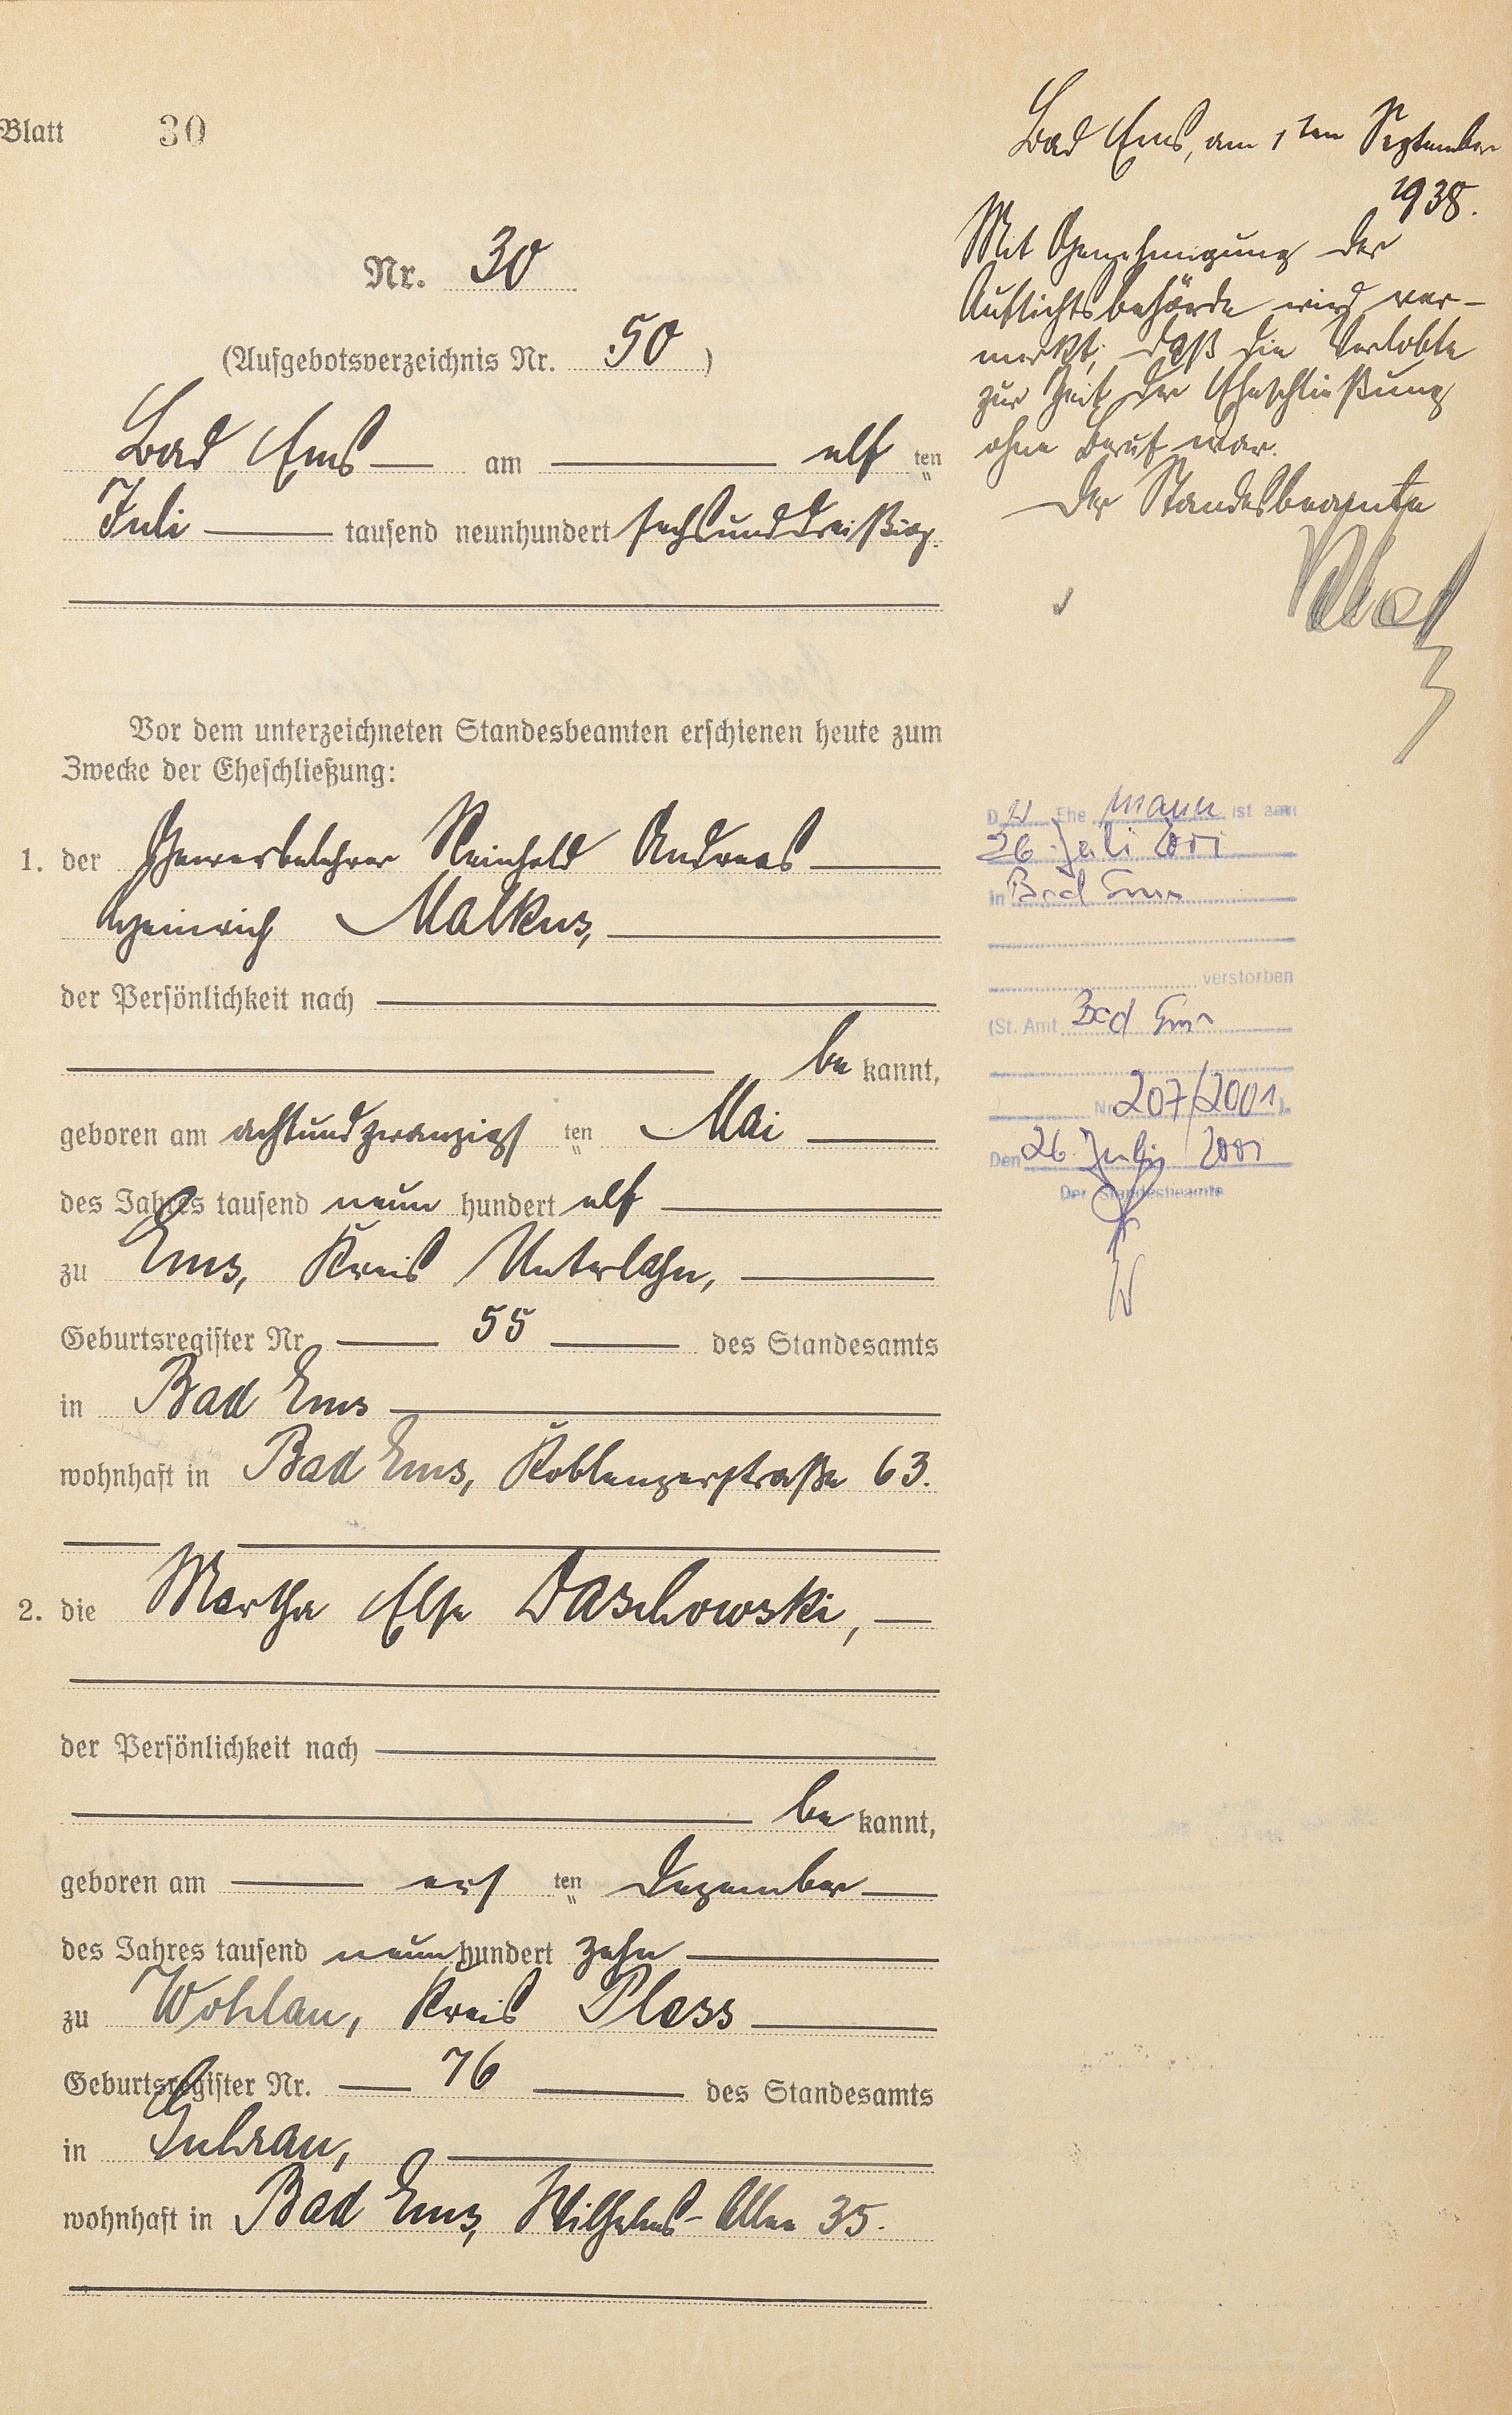 Blatt 30
Nr. 30
(Aufgebotsverzeichnis Nr. 50)
Bad Ems am elf ten
Juli tausend neunhundert sechsunddreißig.
Vor dem unterzeichneten Standesbeamten erschienen heute zum
Zwecke der Eheschließung:
1. der Gewerbelehrer Reinhold Andreas
Heinrich Malkus,
der Persönlichkeit nach
be kannt,
geboren am achtundzwanzigs ten Mai
des Jahres tausend neun hundert elf
zu Ems, Kreis Unterlahn,
Geburtsregister Nr. 55 des Standesamts
in Bad Ems
wohnhaft in Bad Ems, Koblenzerstraße 63.
2. die Martha Else Daschowski,
der Persönlichkeit nach
be kannt,
geboren am ers ten Dezember
des Jahres tausend neun hundert zehn
zu Wohlau, Kreis Pless
Geburtsregister Nr. 76 des Standesamts
in Guhrau,
wohnhaft in Bad Ems, Wilhelms-Allee 35.
Bad Ems, am 1ten September
1938.
Mit Genehmigung der
Aufsichtsbehörde wird ver-
merkt, daß die Verlobte
zur Zeit der Eheschließung
ohne Beruf war.
Der Standesbeamte
D er Ehe mann ist am
26. Juli 2001
in Bad Ems
verstorben
(St. Amt Bad Ems
Nr. 207/2001).
Den 26. Juli 2001
Der Standesbeamte